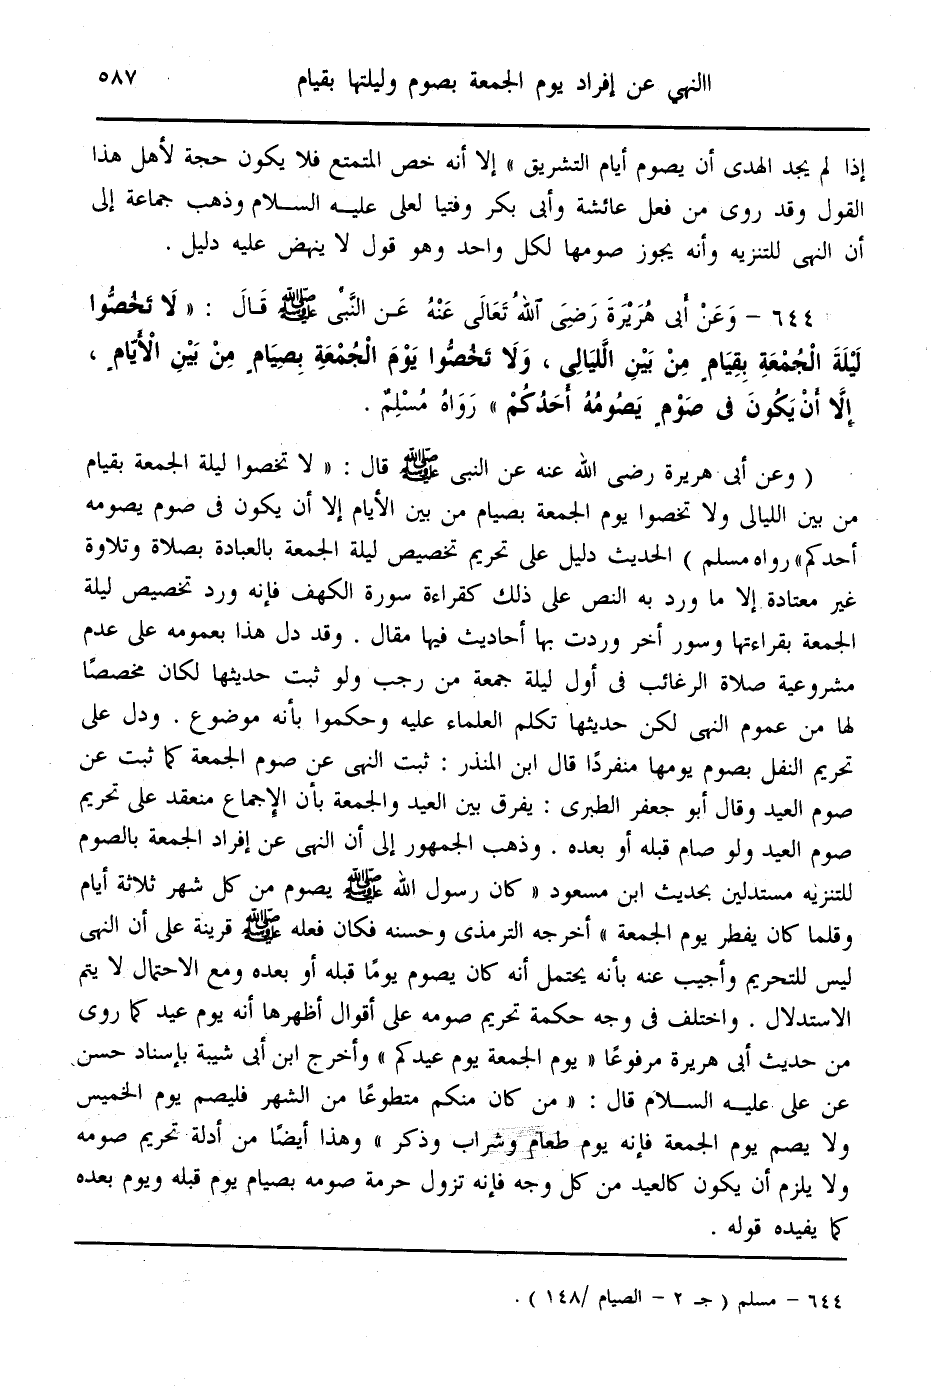 االنهي عن إفراد يوم الجمعة بصوم وليلتها بقيام ٥٨٧
إذا لم يجد الهدى أن يصوم أيام التشريق » إلا أنه خص المتمتع فلا يكون حجة لأهل هذا
القول وقد روى من فعل عائشة وأبى بكر وفتيا لعلى عليه السلام وذهب جماعة إلى
أن النهى للتنزيه وأنه يجوز صومها لكل واحد وهو قول لا ينهض عليه دليل .
٦٤٤ - وَعَنْ أَبِى هُرَيْرَةَ رَضِىَ ٱللهُ تَعَالَى عَنْهُ عَنِ النَّبِىِّ ﷺ قَالَ : « لَا تَخُصُّوا
لَيْلَةَ الْجُمْعَةِ بِقِيَامٍ مِنْ بَيْنِ الَّليَالِى ، وَلَا تَخُصُّوا يَوْمَ الْجُمْعَةِ بِصِيَامٍ مِنْ بَيْنِ الْأَيَّامِ ،
إِلَّا أَنْ يَكُونَ فِى صَوْمٍ يَصُومُهُ أَحَدُكُمْ » رَوَاهُ مُسْلِمٌ .
( وعن أبى هريرة رضى الله عنه عن النبى ﷺ قال : « لا تخصوا ليلة الجمعة بقيام
من بين الليالى ولا تخصوا يوم الجمعة بصيام من بين الأيام إلا أن يكون فى صوم يصومه
أحدكم» رواه مسلم ) الحديث دليل على تحريم تخصيص ليلة الجمعة بالعبادة بصلاة وتلاوة
غير معتادة إلا ما ورد به النص على ذلك كقراءة سورة الكهف فإنه ورد تخصيص ليلة
الجمعة بقراءتها وسور أخر وردت بها أحاديث فيها مقال . وقد دل هذا بعمومه على عدم
مشروعية صلاة الرغائب فى أول ليلة جمعة من رجب ولو ثبت حديثها لكان مخصصًا
لها من عموم النهى لكن حديثها تكلم العلماء عليه وحكموا بأنه موضوع . ودل على
تحريم النفل بصوم يومها منفردًا قال ابن المنذر : ثبت النهى عن صوم الجمعة كما ثبت عن
صوم العيد وقال أبو جعفر الطبرى : يفرق بين العيد والجمعة بأن الإجماع منعقد على تحريم
صوم العيد ولو صام قبله أو بعده . وذهب الجمهور إلى أن النهى عن إفراد الجمعة بالصوم
للتنزيه مستدلين بحديث ابن مسعود « كان رسول الله ﷺ يصوم من كل شهر ثلاثة أيام
وقلما كان يفطر يوم الجمعة » أخرجه الترمذى وحسنه فكان فعله ﷺ قرينة على أن النهى
ليس للتحريم وأجيب عنه بأنه يحتمل أنه كان يصوم يومًا قبله أو بعده ومع الاحتمال لا يتم
الاستدلال . واختلف فى وجه حكمة تحريم صومه على أقوال أظهرها أنه يوم عيد كما روى
من حديث أبى هريرة مرفوعًا « يوم الجمعة يوم عيدكم » وأخرج ابن أبى شيبة بإسناد حسن
عن على عليه السلام قال : « من كان منكم متطوعًا من الشهر فليصم يوم الخميس
ولا يصم يوم الجمعة فإنه يوم طعام وشراب وذكر » وهذا أيضًا من أدلة تحريم صومه
ولا يلزم أن يكون كالعيد من كل وجه فإنه تزول حرمة صومه بصيام يوم قبله ويوم بعده
كما يفيده قوله .
٦٤٤ - مسلم ( جـ ٢ - الصيام /١٤٨ ) .